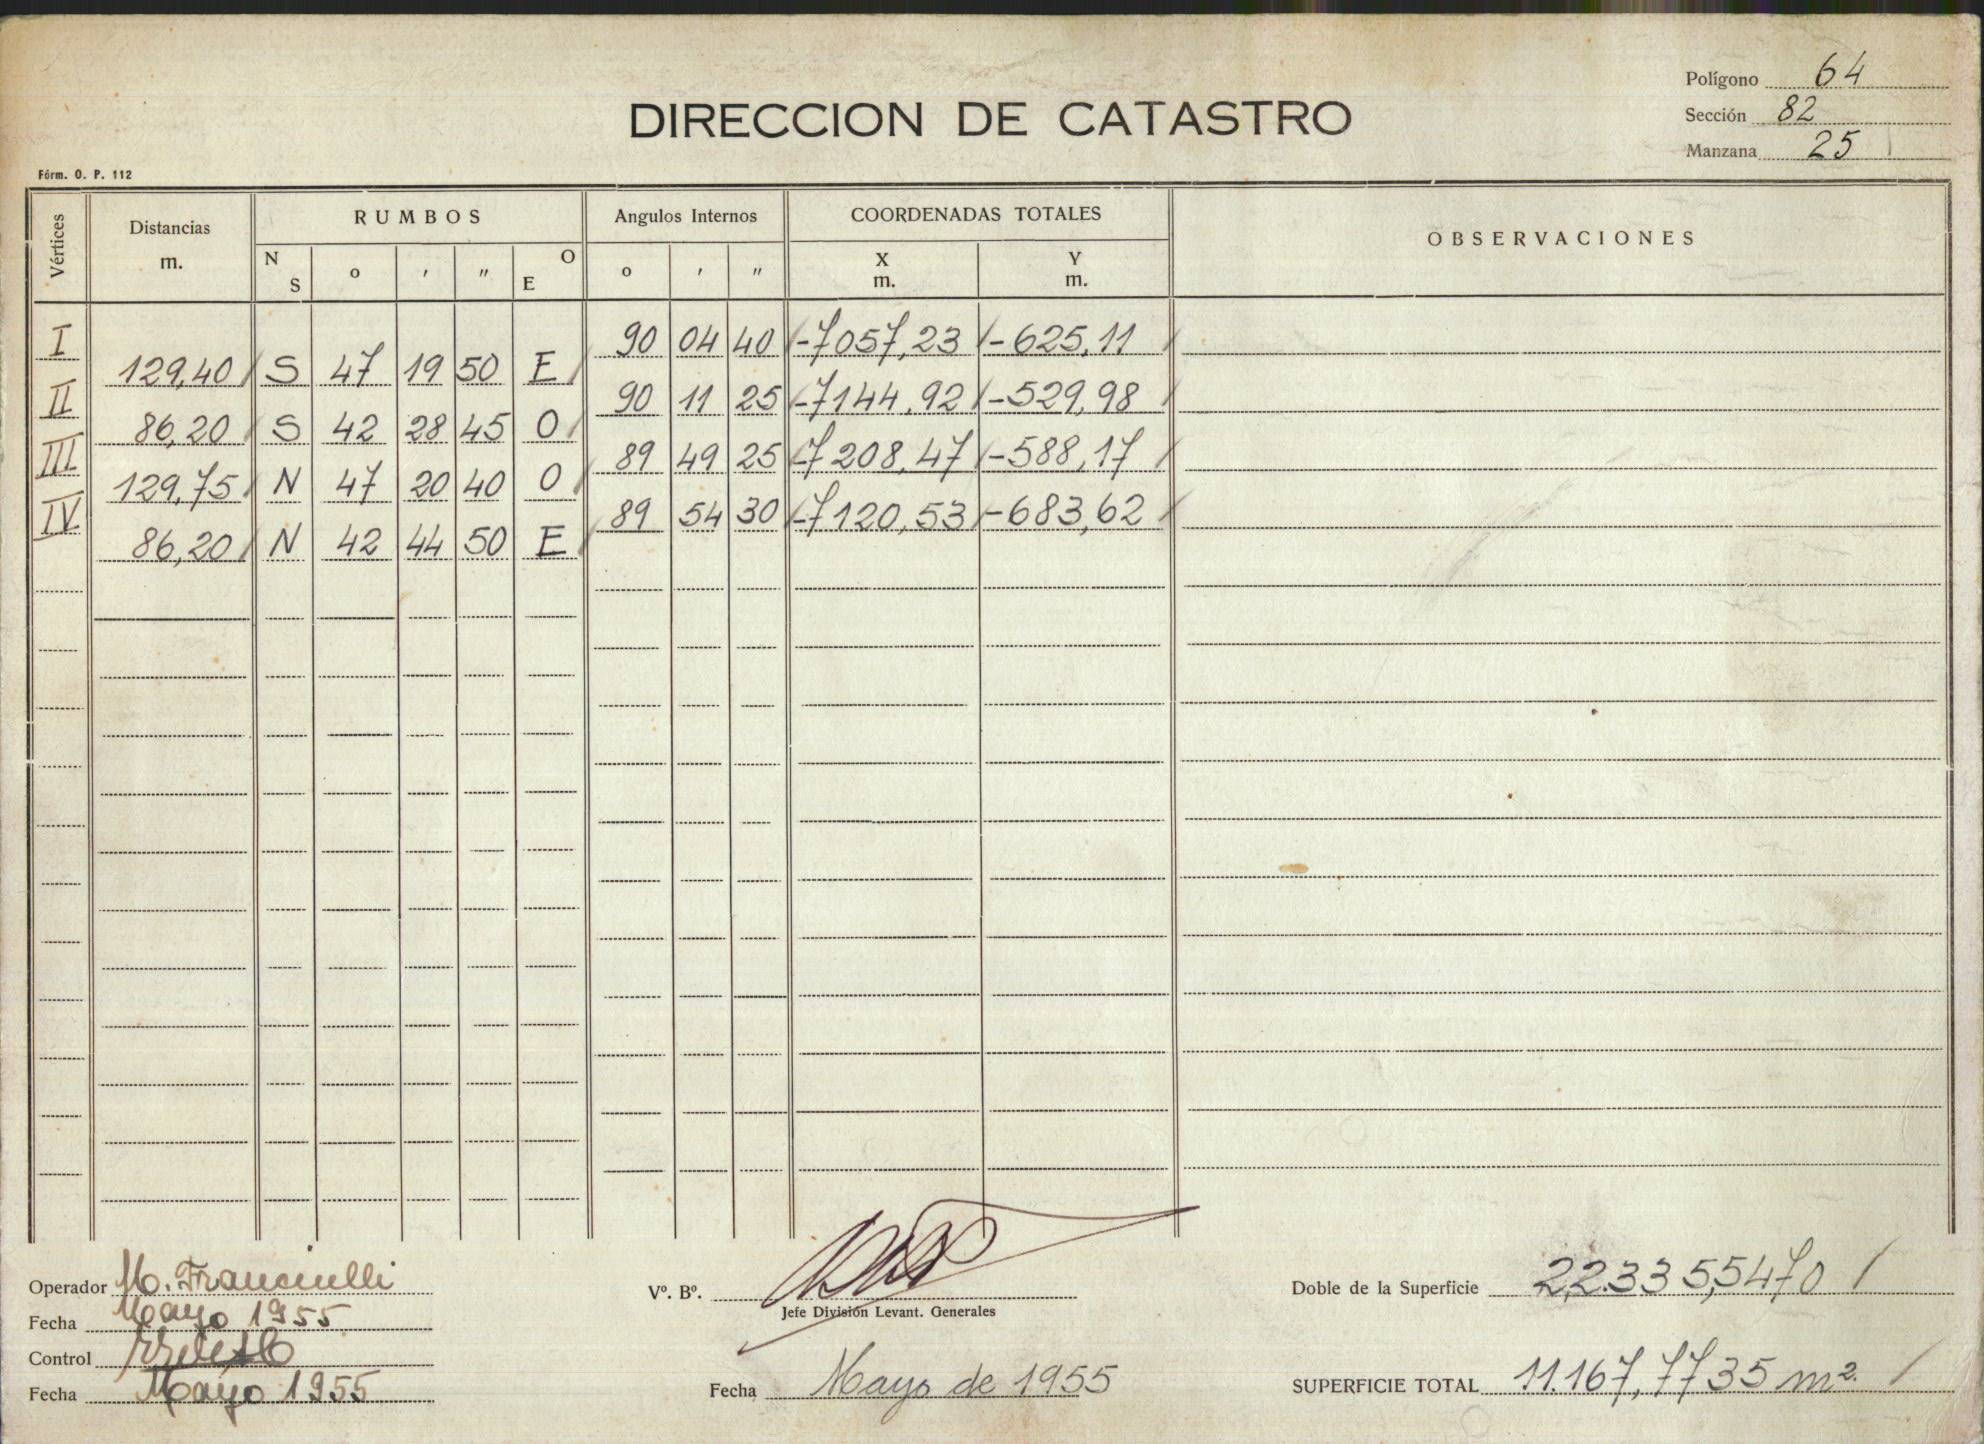 Polígono 64
DIRECCION DE CATASTRO
Sección 82
Manzana 25
Fórm. O. P. 112
Vértices Distancias m. RUMBOS Angulos Internos COORDENADAS TOTALES OBSERVACIONES
N S o ' " O E o ' " X m. Y m.
I 90 04 40 -7057,23 -625,11
129,40 S 47 19 50 E
II 90 11 25 -7144,92 -529,98
86,20 S 42 28 45 O
III 89 49 25 -7208,47 -588,17
129,75 N 47 20 40 O
IV 89 54 30 -7120,53 -683,62
86,20 N 42 44 50 E
Operador M. Franciulli
Vº. Bº.
Jefe División Levant. Generales
Doble de la Superficie 22.335,5470
Fecha Mayo 1955
Control
Fecha Mayo 1955
Fecha Mayo de 1955
SUPERFICIE TOTAL 11.167,7735 m2.